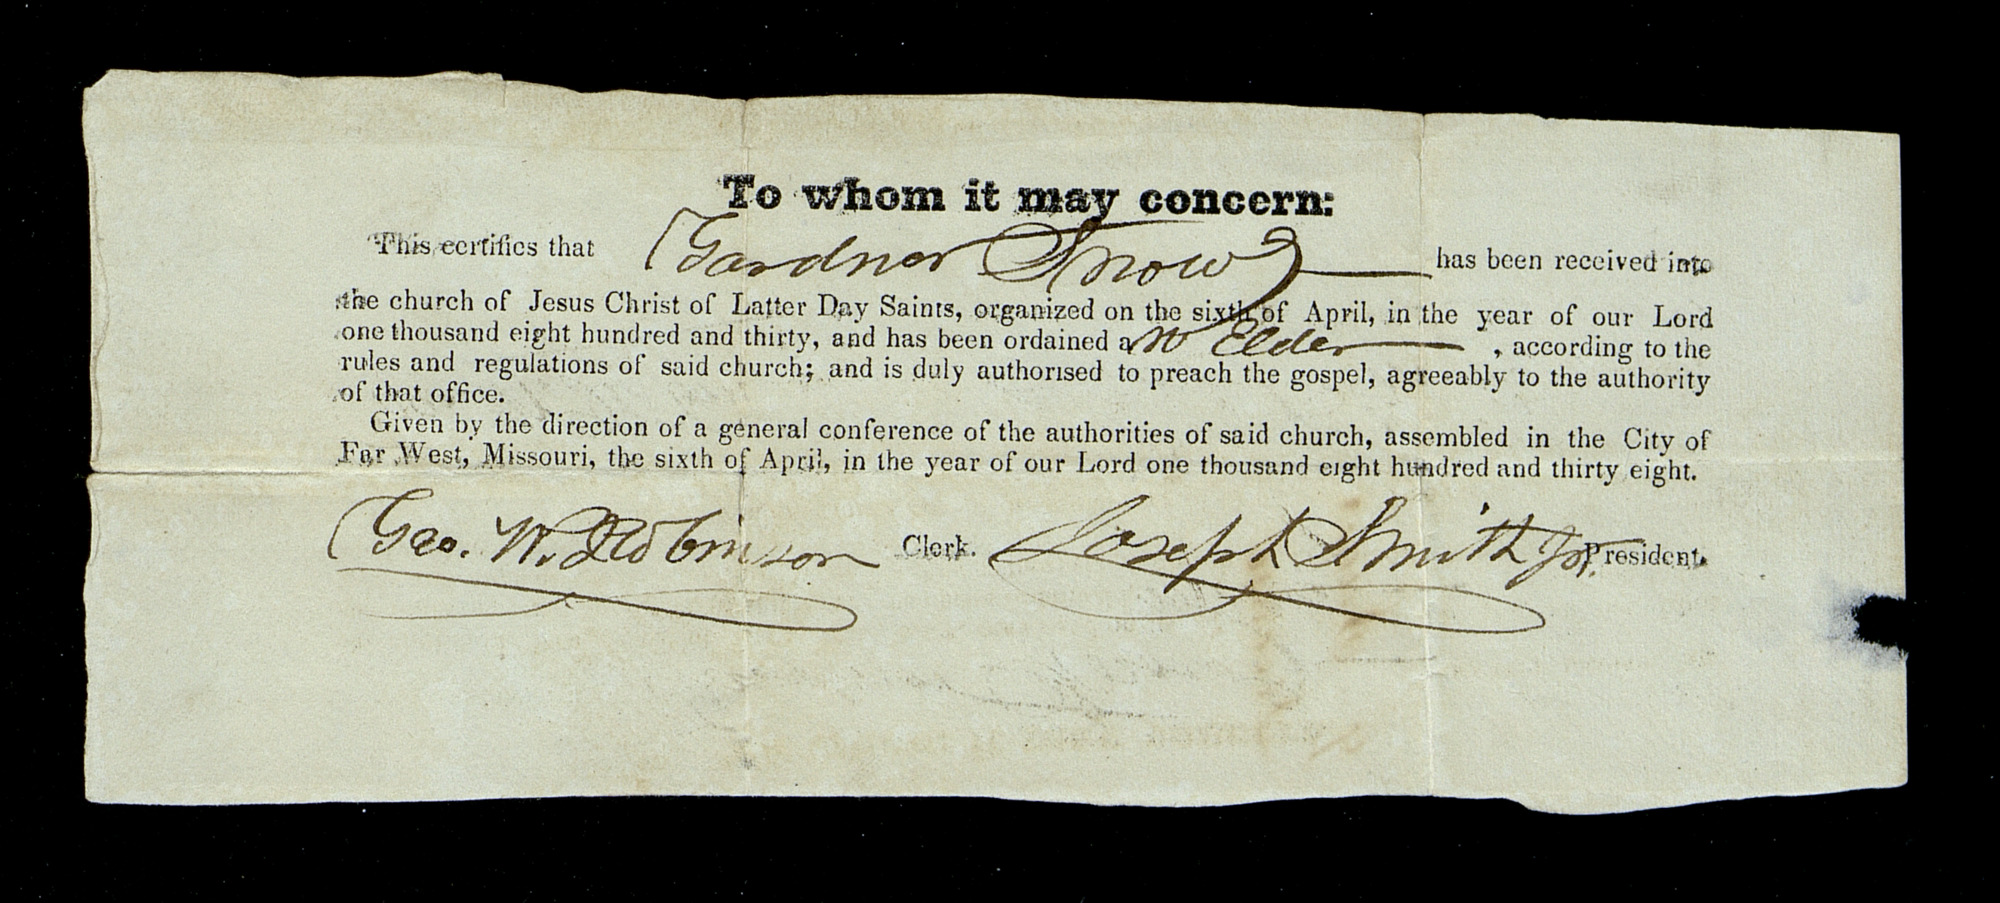 To whom it may concern:
This certifies that Gardner Snow has been received into
the church of Jesus Christ of Latter Day Saints, organized on the sixth of April, in the year of our Lord
one thousand eight hundred and thirty, and has been ordained an Elder , according to the
rules and regulations of said church; and is duly authorised to preach the gospel, agreeably to the authority
of that office.
Given by the direction of a general conference of the authorities of said church, assembled in the City of
Far West, Missouri, the sixth of April, in the year of our Lord one thousand eight hundred and thirty eight.
Geo. W. Robinson Clerk. Joseph Smith Jr. President.